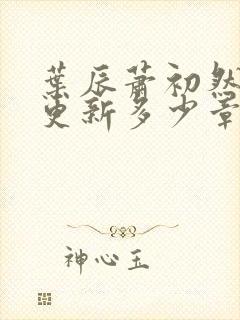 葉辰蕭初然
更新多少章
神心玉